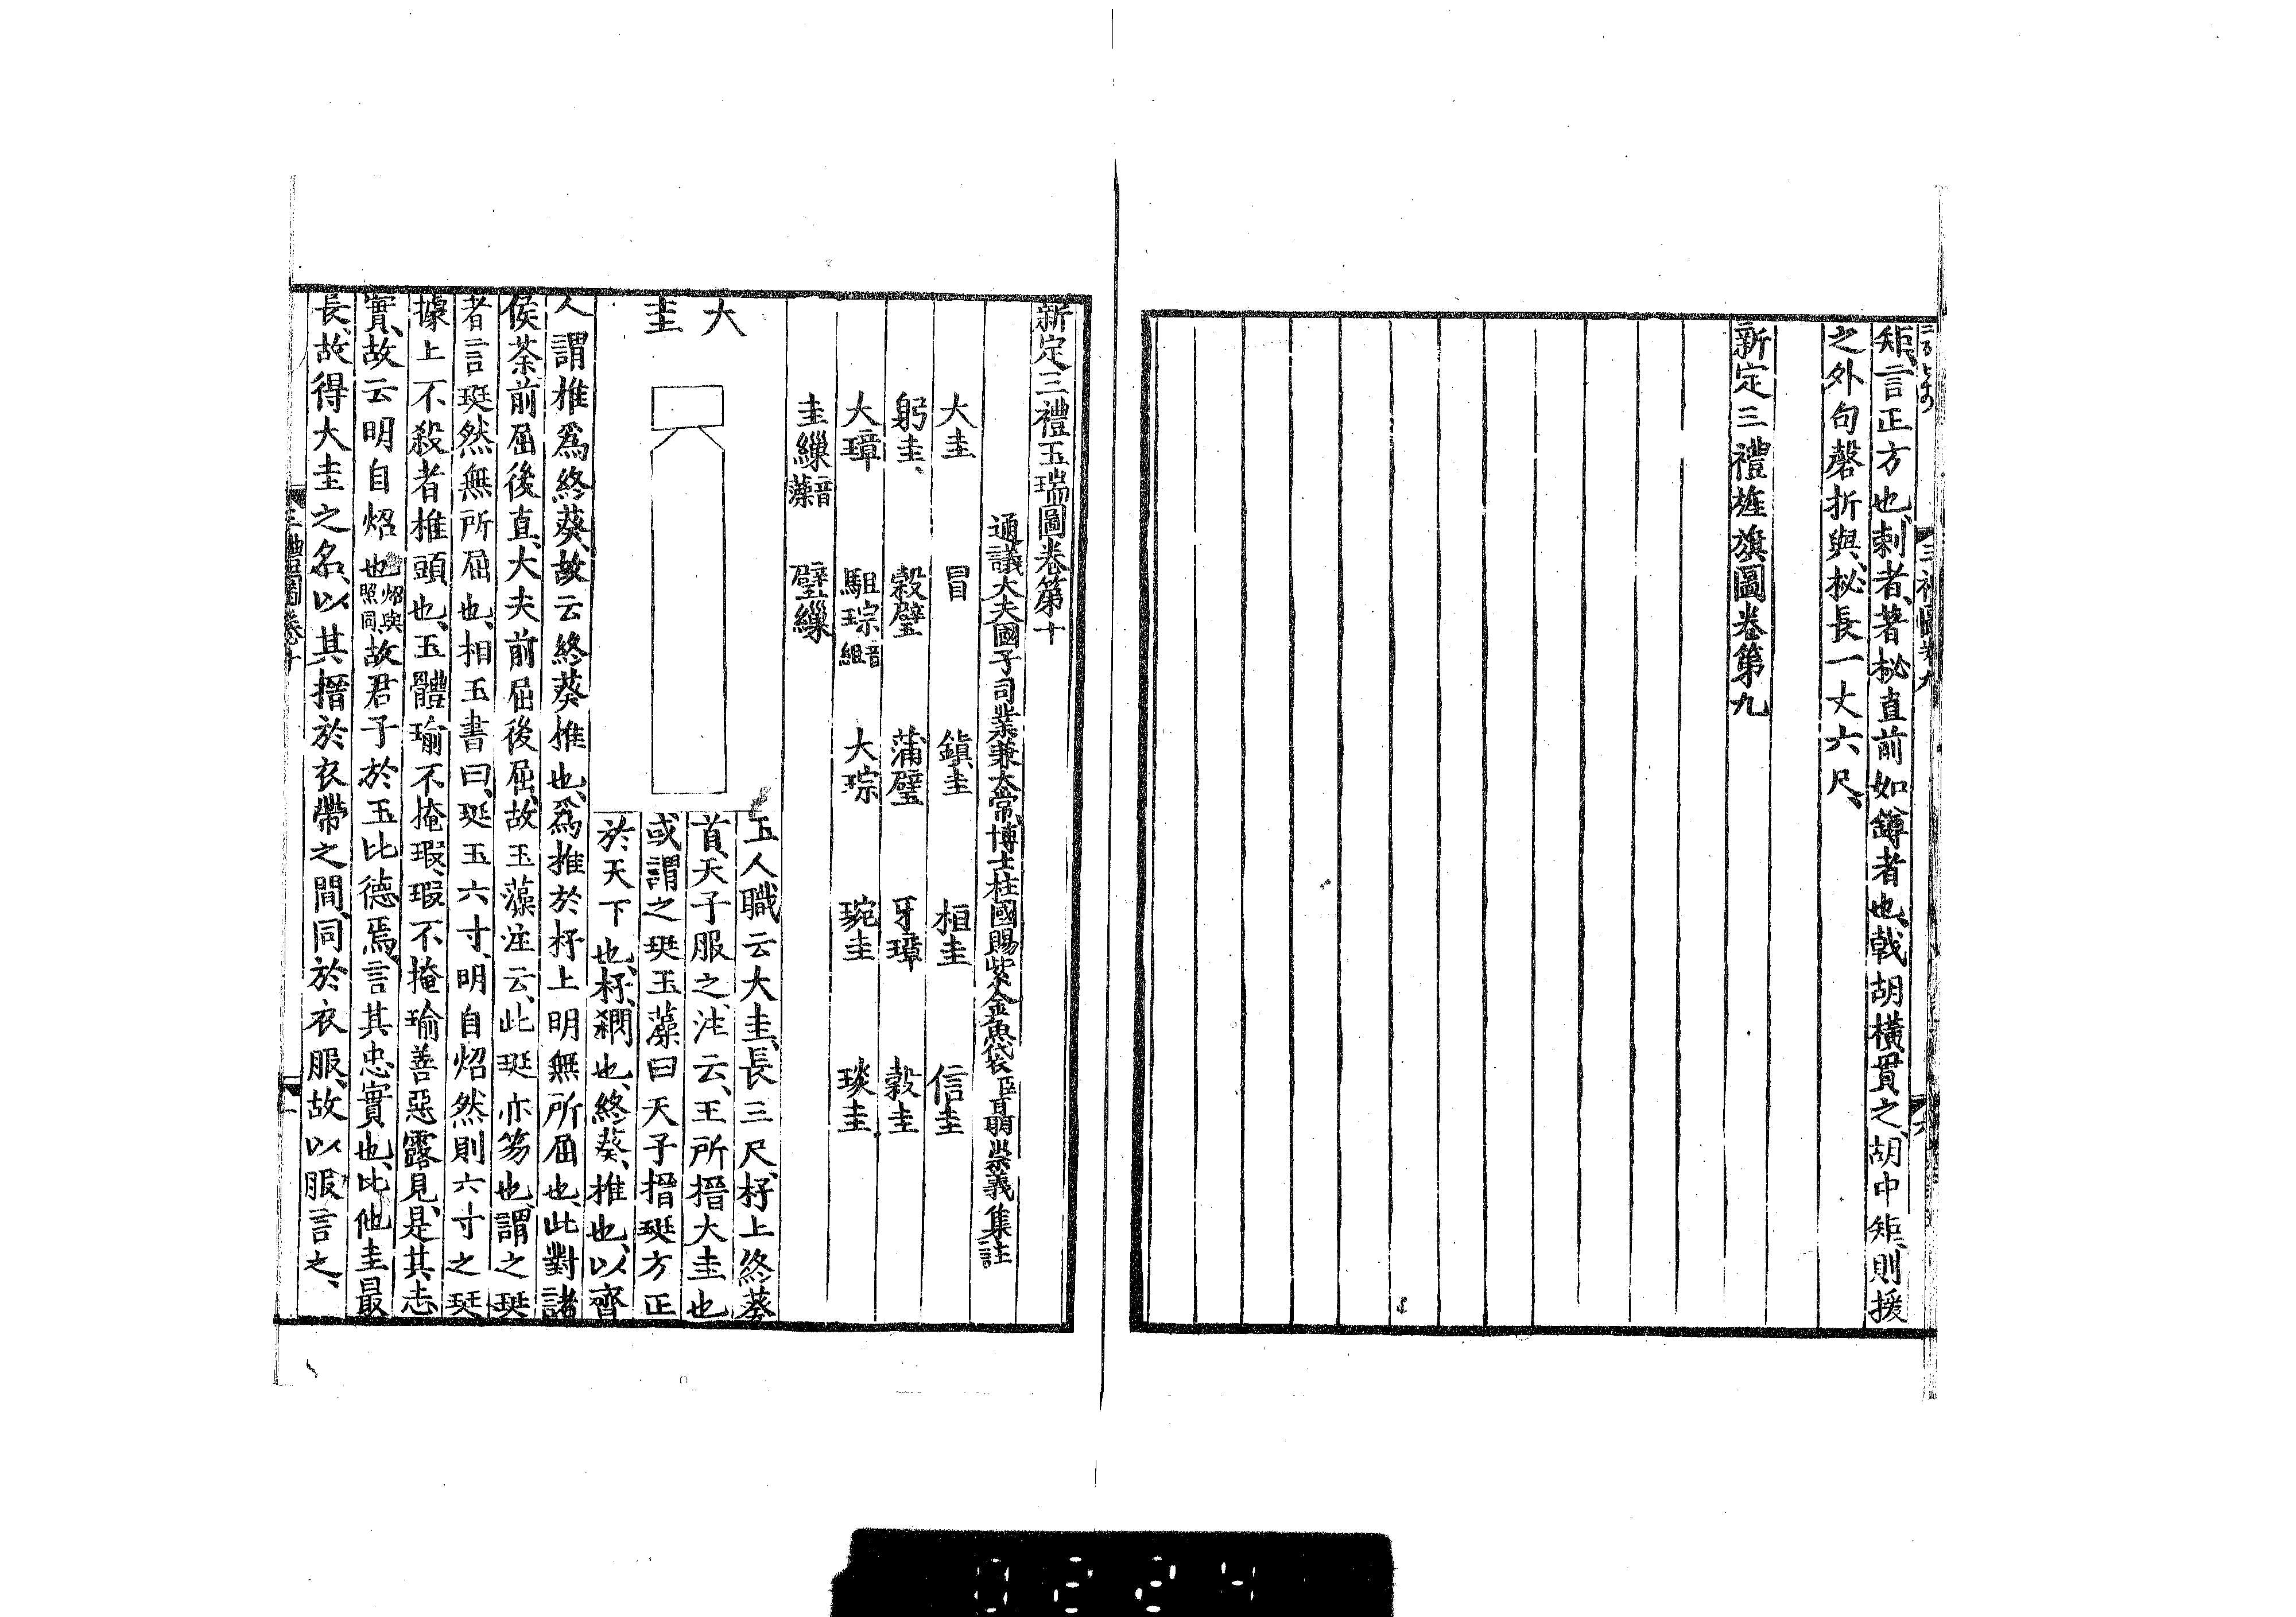 三禮圖卷九
矩、言正方也、刺者、著柲直前如鐏者也、戟胡橫貫之、胡中矩、則援
之外句磬折與、柲長一丈六尺、
新定三禮旌旗圖卷第九
新定三禮玉瑞圖卷第十
通議大夫國子司業兼太常博士柱國賜紫金魚袋臣聶崇義集註
大圭 冒 鎮圭 桓圭 信圭
躬圭、 穀璧 蒲璧 牙璋 穀圭
大璋 駔琮音組 大琮 琬圭 琰圭
圭繅音藻 璧繅
大圭
玉人職云大圭、長三尺、杼上終葵
首、天子服之、注云、王所搢大圭也
或謂之珽玉藻曰天子搢珽方正
於天下也、杼、閷也、終葵、椎也、以齊
人謂椎爲終葵、故云終葵椎也、爲椎於杼上明無所屈也、此對諸
侯荼前屈後直、大夫前屈後屈、故玉藻注云、此珽亦笏也、謂之珽
者言珽然無所屈也、相玉書曰、珽玉六寸、明自炤然則六寸之珽、
據上不殺者椎頭也、玉體瑜不掩瑕、瑕不掩瑜善惡露見、是其忠
實、故云明自炤也炤與照同、故君子於玉比德焉、言其忠實也、比他圭最
長、故得大圭之名、以其搢於衣帶之間、同於衣服、故以服言之、
三禮圖卷十
0224